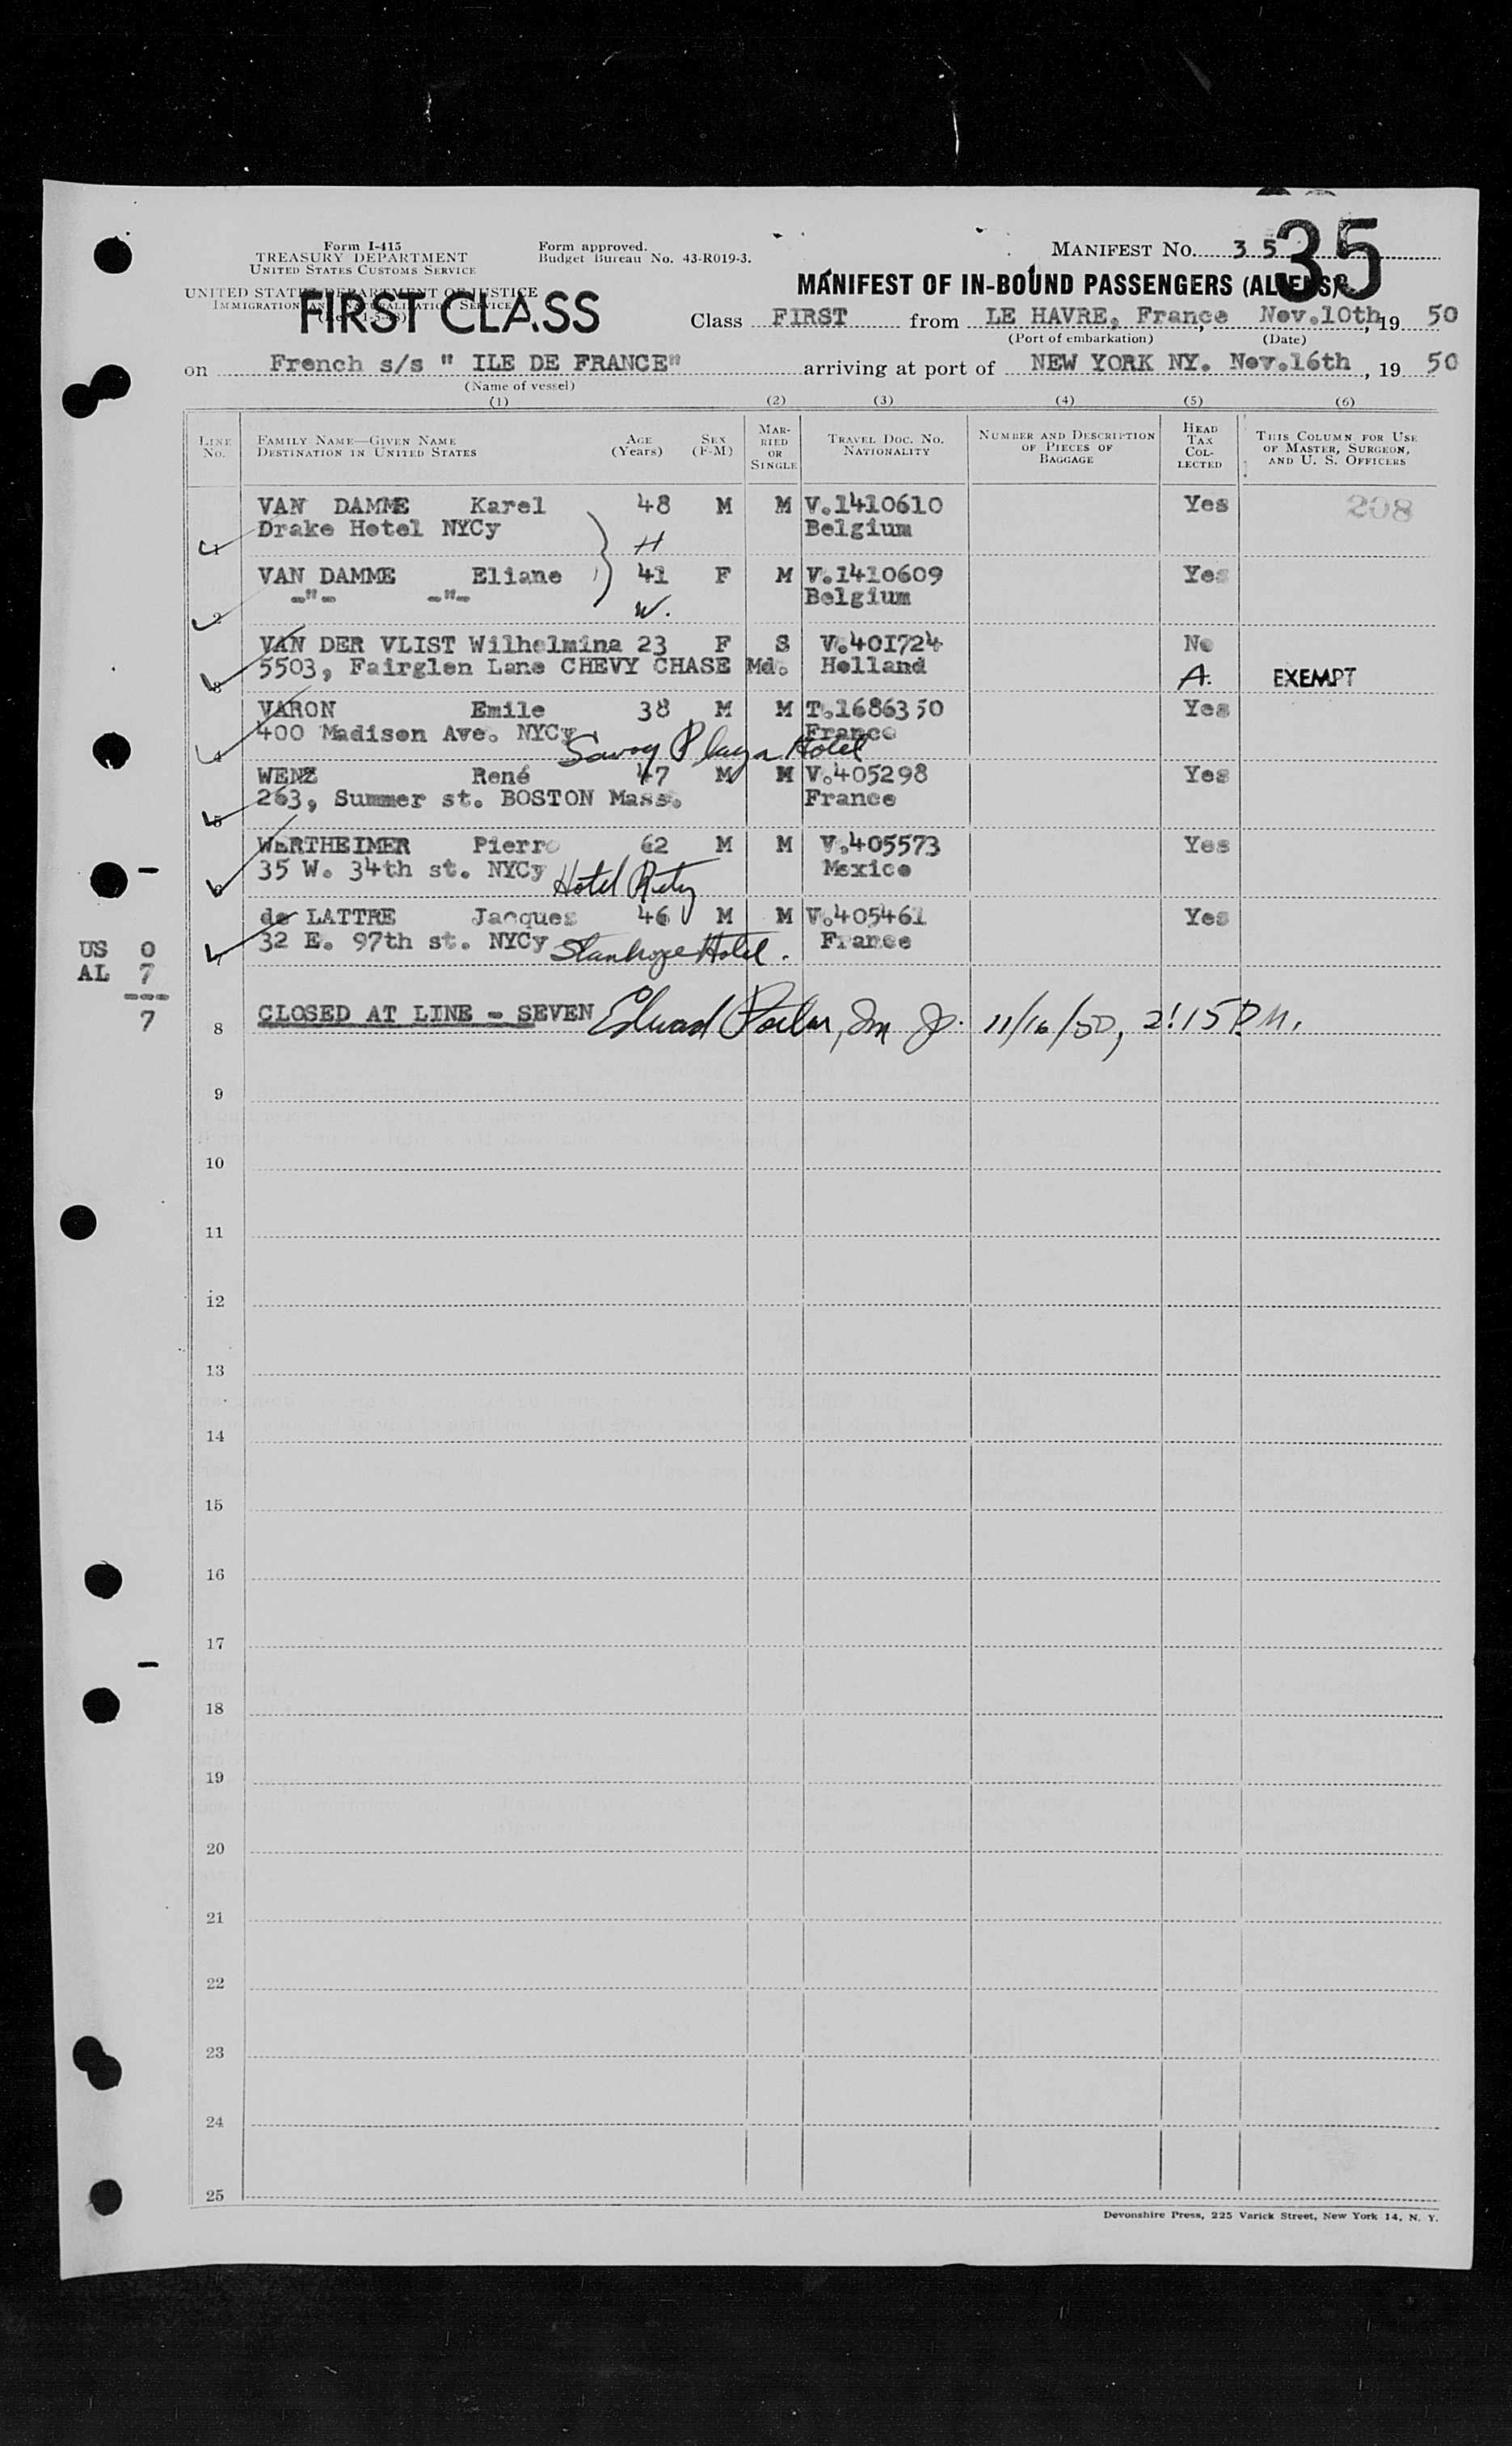 Form I-415
TREASURY DEPARTMENT
UNITED STATES CUSTOMS SERVICE
Form approved.
Budget Bureau No. 43-R019-3.
MANIFEST No. 35
35
UNITED STATES DEPARTMENT OF JUSTICE
IMMIGRATION AND NATURALIZATION SERVICE
FIRST CLASS
MANIFEST OF IN-BOUND PASSENGERS (ALIENS)
Class FIRST from LE HAVRE, France, Nov.10th, 19 50
(Port of embarkation) (Date)
on French s/s " ILE DE FRANCE" arriving at port of NEW YORK NY. Nov.16th, 19 50
(Name of vessel)
(1) (2) (3) (4) (5) (6)
LINE No. FAMILY NAME—GIVEN NAME DESTINATION IN UNITED STATES AGE (Years) SEX (F-M) MARRIED OR SINGLE TRAVEL DOC. NO. NATIONALITY NUMBER AND DESCRIPTION OF PIECES OF BAGGAGE HEAD TAX COLLECTED THIS COLUMN FOR USE OF MASTER, SURGEON, AND U. S. OFFICERS
VAN DAMME Karel 48 M M V.1410610 Yes 208
Drake Hotel NYCy Belgium
1 H
VAN DAMME Eliane 41 F M V.1410609 Yes
-"- -"- Belgium
2 W.
VAN DER VLIST Wilhelmina 23 F S V.401724 No
3 5503, Fairglen Lane CHEVY CHASE Md. Holland A. EXEMPT
VARON Emile 38 M M T.1686350 Yes
400 Madison Ave. NYCy France
4 Savoy Plaza Hotel
WENZ René 47 M M V.405298 Yes
263, Summer st. BOSTON Mass. France
5
WERTHEIMER Pierre 62 M M V.405573 Yes
35 W. 34th st. NYCy Mexico
6 Hotel Ritz
de LATTRE Jacques 46 M M V.405461 Yes
32 E. 97th st. NYCy France
7 Stanhope Hotel.
US 0
AL 7
---
7
8 CLOSED AT LINE - SEVEN Edward 11/16/50, 2:15 P.M.
9
10
11
12
13
14
15
16
17
18
19
20
21
22
23
24
25
Devonshire Press, 225 Varick Street, New York 14, N. Y.